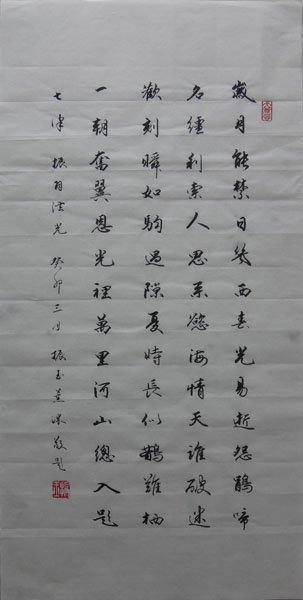 歲月能禁日幾西春光易逝怨鵑啼
名繮利索人思系慾海情天誰破迷
歡刻瞬如駒過隙憂時長似鵲難栖
一朝奮翼恩光裡萬里河山總入題
七律 振羽光 癸卯三月 振玉薰沐敬題